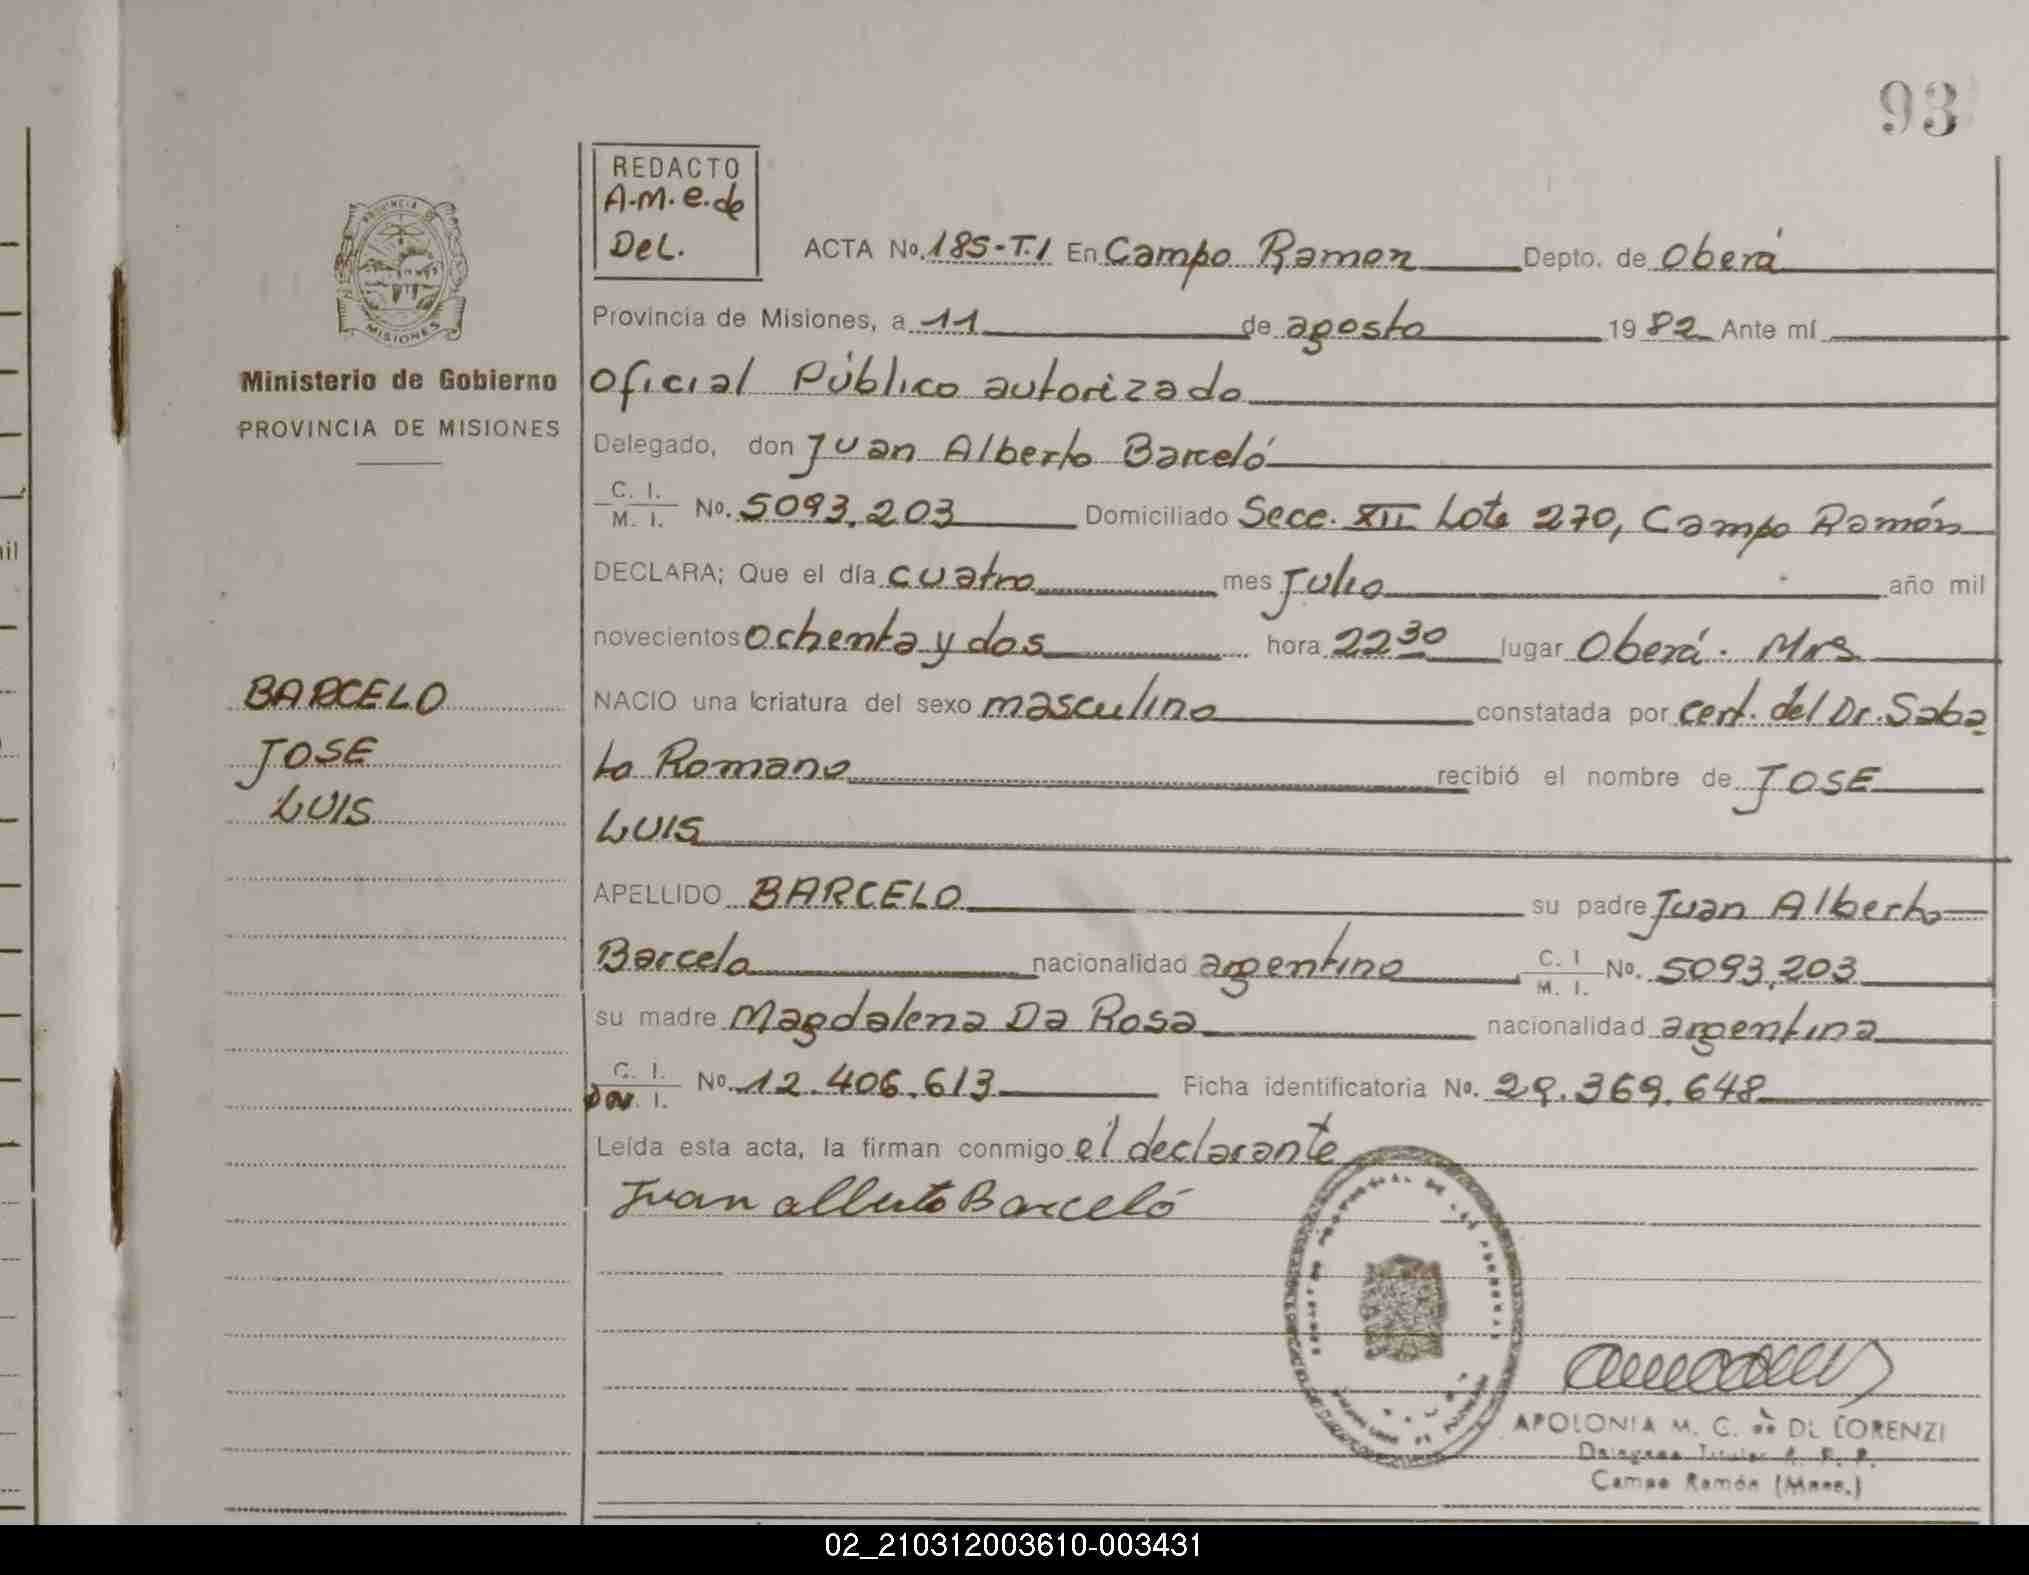 93
REDACTO
A.M.e.de
DeL.
PROVINCIA DE
MISIONES
Ministerio de Gobierno
PROVINCIA DE MISIONES
BARCELO
JOSE
LUIS
ACTA No. 185-T.I En Campo Ramon Depto. de Oberá
Provincia de Misiones, a 11 de agosto 1982 Ante mí
Oficial Público autorizado
Delegado, don Juan Alberto Barceló
C. I. / M. I. No. 5093.203 Domiciliado Secc. XII Lote 270, Campo Ramón
DECLARA; Que el día cuatro mes Julio año mil
novecientos ochenta y dos hora 22 30 lugar Oberá. Mns
NACIO una criatura del sexo masculino constatada por cert. del Dr. Saba
to Romano recibió el nombre de JOSE
LUIS
APELLIDO BARCELO su padre Juan Alberto
Barcelo nacionalidad argentino C. I / M. I. No. 5093.203
su madre Magdalena Da Rosa nacionalidad argentina
C. I. / I. No. 12.406.613 Ficha identificatoria No. 29.369.648
Leída esta acta, la firman conmigo el declarante
Juan Alberto Barceló
APOLONIA M. C. de DE LORENZI
Delegada Titular R. P.
Campo Ramón (Mnes.)
il
02_210312003610-003431